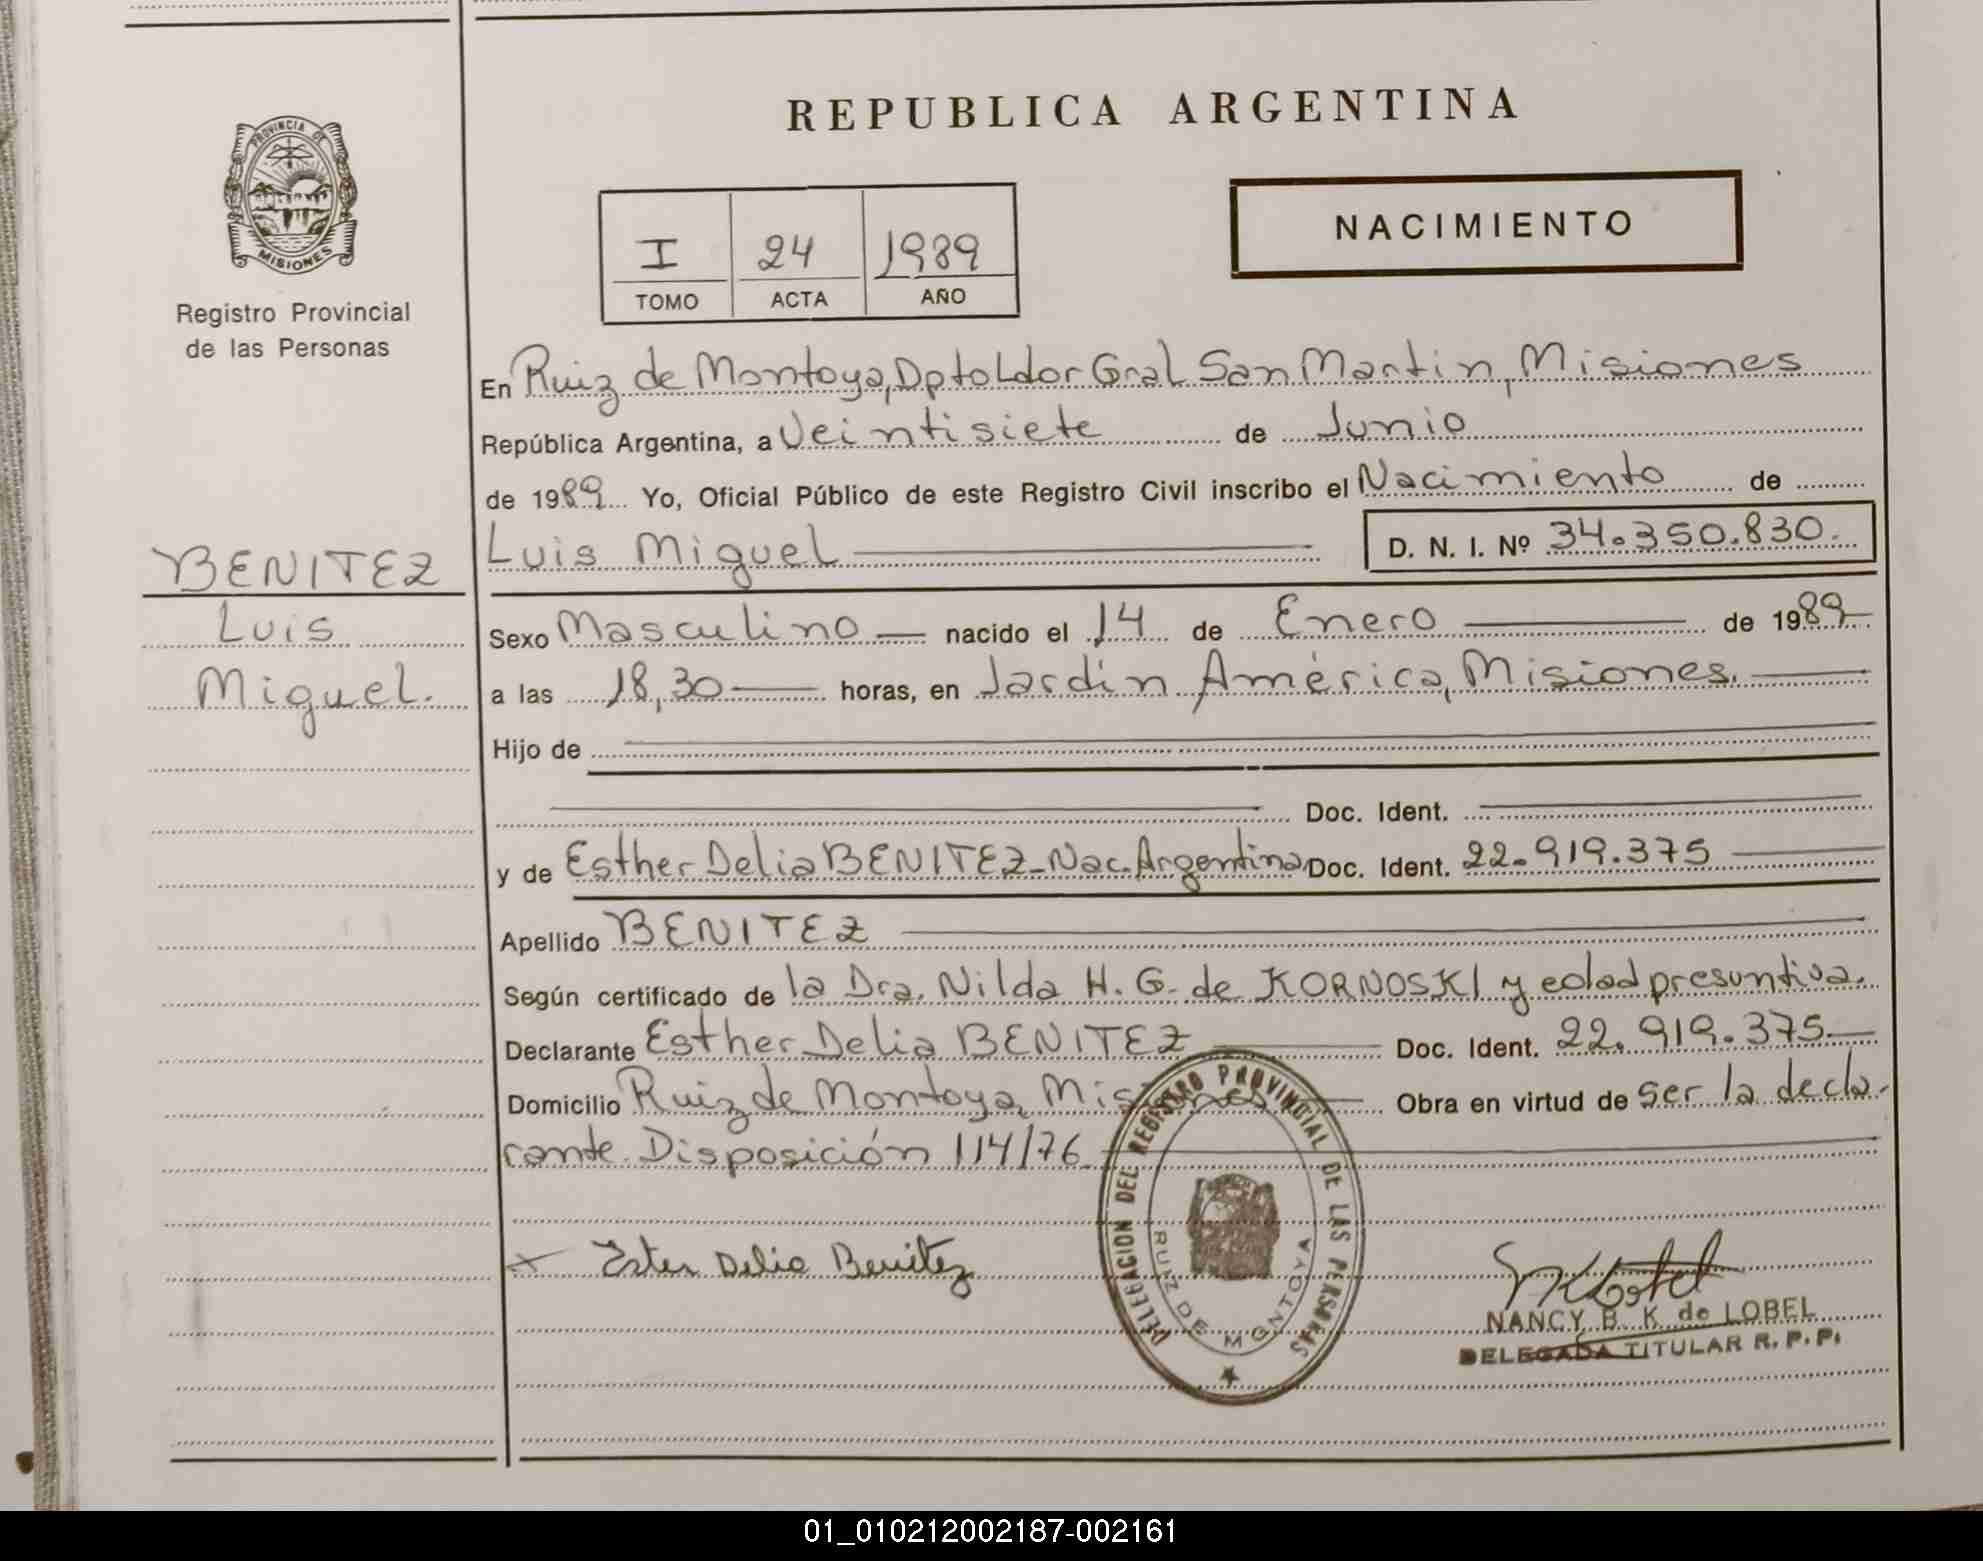 REPUBLICA ARGENTINA
PROVINCIA DE
MISIONES
Registro Provincial
de las Personas
NACIMIENTO
I 24 1989
TOMO ACTA AÑO
En Ruiz de Montoya, Dpto Ldor Gral San Martin, Misiones
República Argentina, a Veintisiete de Junio
de 1989 Yo, Oficial Público de este Registro Civil inscribo el Nacimiento de
Luis Miguel D. N. I. Nº 34.350.830.
BENITEZ
Luis
Miguel.
Sexo Masculino nacido el 14 de Enero de 1989
a las 18,30 horas, en Jardín América, Misiones.
Hijo de
Doc. Ident.
y de Esther Delia BENITEZ - Nac. Argentina Doc. Ident. 22.919.375
Apellido BENITEZ
Según certificado de la Dra. Nilda H. G. de KORNOSKI y edad presuntiva.
Declarante Esther Delia BENITEZ Doc. Ident. 22.919.375
Domicilio Ruiz de Montoya, Misiones Obra en virtud de ser la decla-
rante. Disposición 114/76
Ester Delia Benitez
DELEGACION DEL REGISTRO PROVINCIAL DE LAS PERSONAS
RUIZ DE MONTOYA
NANCY B. K. de LOBEL
DELEGADA TITULAR R. P. P.
01_010212002187-002161